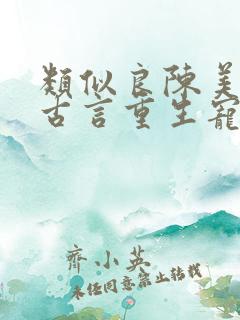 類似良陳美
古言重生寵
齊小英
未經同意禁止轉載